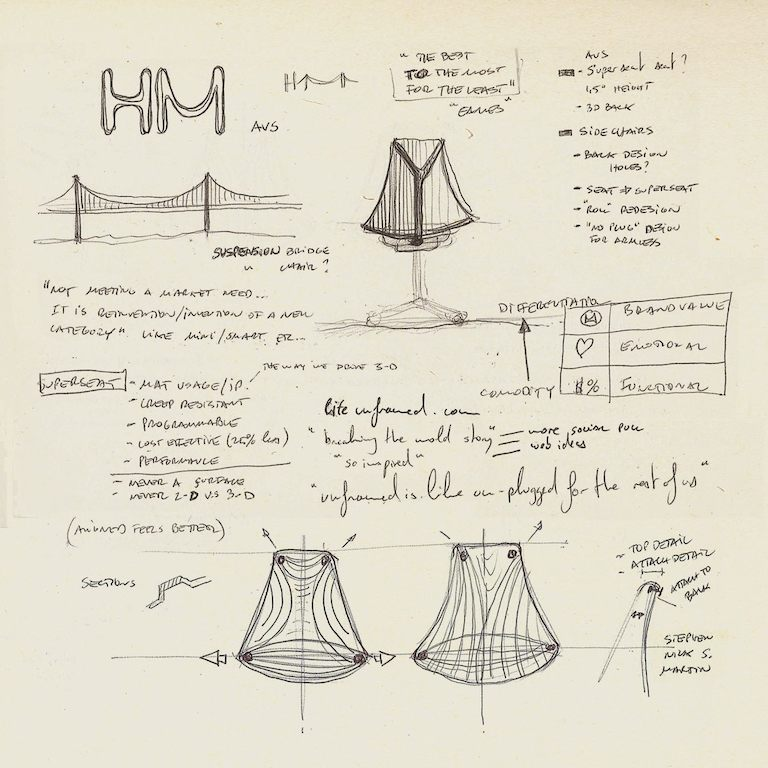 HM
AVS
HM
" THE BEST
FOR THE MOST
FOR THE LEAST"
"EAMES"
AVS
- SUPERSEAT SEAT?
1.5" HEIGHT
- 3D BACK
SIDE CHAIRS
- BACK DESIGN
HOLES?
- SEAT => SUPERSEAT
- REDESIGN
- "NO PLUG" DESIGN
FOR ARMLESS
SUSPENSION BRIDGE
" CHAIR?
"NOT MEETING A MARKET NEED...
IT IS REINVENTION/INVENTION OF A NEW
CATEGORY" LIKE MINI/SMART, ETC...
DIFFERENTIATION
BRAND VALUE
EMOTIONAL
$% FUNCTIONAL
COMODITY
THE WAY WE DRIVE 3-D
SUPERSEAT - MAT USAGE/IP.
- CREEP RESISTANT
- PROGRAMMABLE
- COST EFFECTIVE (25% less)
- PERFORMANCE
- NEVER A SURFACE
- NEVER 2-D VS 3-D
life unframed.com
"breaking the mold story"
more social pull
web ideas
"so inspired"
"unframed is like un-plugged for the rest of us"
(ALIGNED FEELS BETTER)
SECTIONS
- TOP DETAIL
- ATTACH DETAIL
ATTACH TO
BACK
STEPHEN
NICK S.
MARTIN